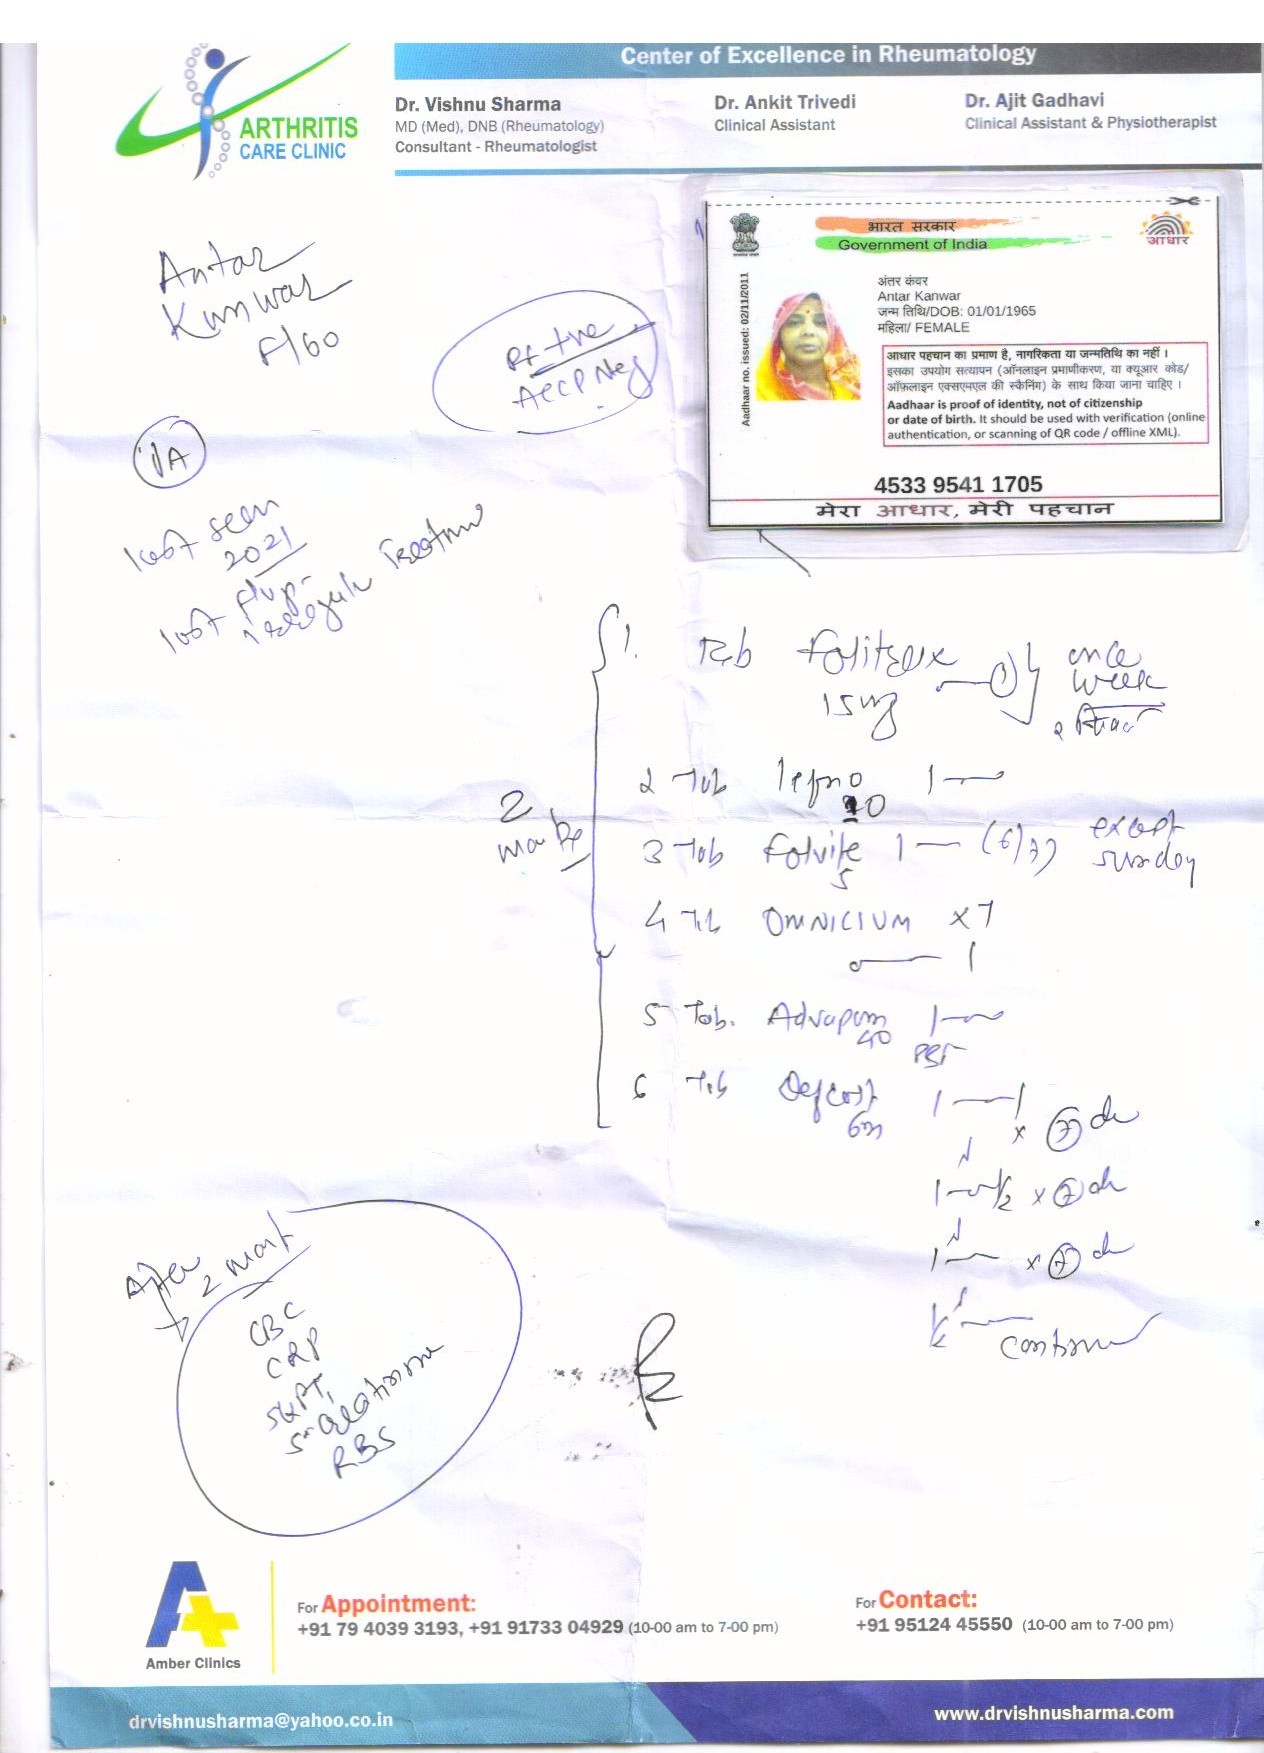 Center of Excellence in Rheumatology
ARTHRITIS
CARE CLINIC
Dr. Vishnu Sharma
MD (Med), DNB (Rheumatology)
Consultant - Rheumatologist
Dr. Ankit Trivedi
Clinical Assistant
Dr. Ajit Gadhavi
Clinical Assistant & Physiotherapist
भारत सरकार
Government of India
आधार
Aadhaar no. issued: 02/11/2011
अंतर कंवर
Antar Kanwar
जन्म तिथि/DOB: 01/01/1965
महिला/ FEMALE
आधार पहचान का प्रमाण है, नागरिकता या जन्मतिथि का नहीं ।
इसका उपयोग सत्यापन (ऑनलाइन प्रमाणीकरण, या क्यूआर कोड/
ऑफ़लाइन एक्सएमएल की स्कैनिंग) के साथ किया जाना चाहिए ।
Aadhaar is proof of identity, not of citizenship
or date of birth. It should be used with verification (online
authentication, or scanning of QR code / offline XML).
4533 9541 1705
मेरा आधार, मेरी पहचान
Antar
Kunwar
F/60
RF +ve
ACCP Neg
last seen
2021
lost flup-
Treatment
2
month
1. Tab Folitrax once
15 mg week
2 Tab lefno 1
20
3 Tab Folvite 1 (6/7) except
5 sunday
4 Tab OMNICIUM x7
1
5 Tab. Advapam 1
40
6 Tab Defcort 1 1
6m x 7 d
1 1/2 x 7 d
1 x 7 d
continue
After 2 mont
CBC
CRP
SGPT,
S. creatinine
RBS
Amber Clinics
For Appointment:
+91 79 4039 3193, +91 91733 04929 (10-00 am to 7-00 pm)
For Contact:
+91 95124 45550 (10-00 am to 7-00 pm)
drvishnusharma@yahoo.co.in
www.drvishnusharma.com